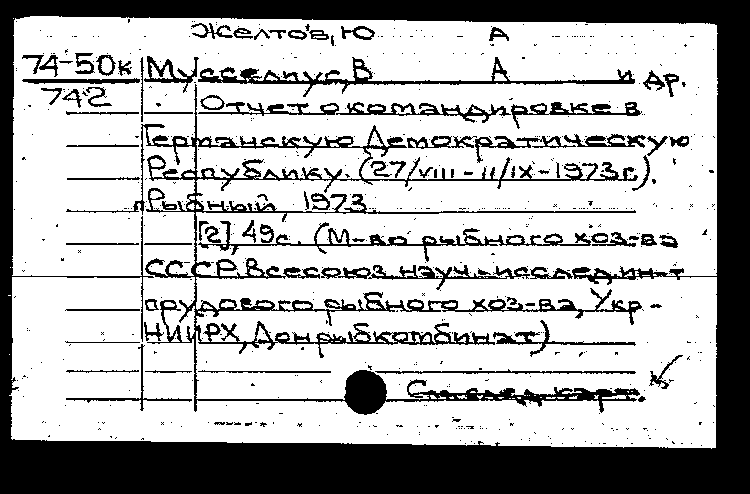 Желтов, Ю А
74-50к Мусселиус, В А и др.
742 Отчет о командировке в
Германскую Демократическую
Республику. (27/VIII - 11/IX - 1973 г.).
п. Рыбный, 1973.
[2], 49 с. (М-во рыбного хоз-ва
СССР. Всесоюз. науч.-исслед. ин-т
прудового рыбного хоз-ва, Укр-
НИИРХ, Донрыбкомбинат)
См. след. карт.